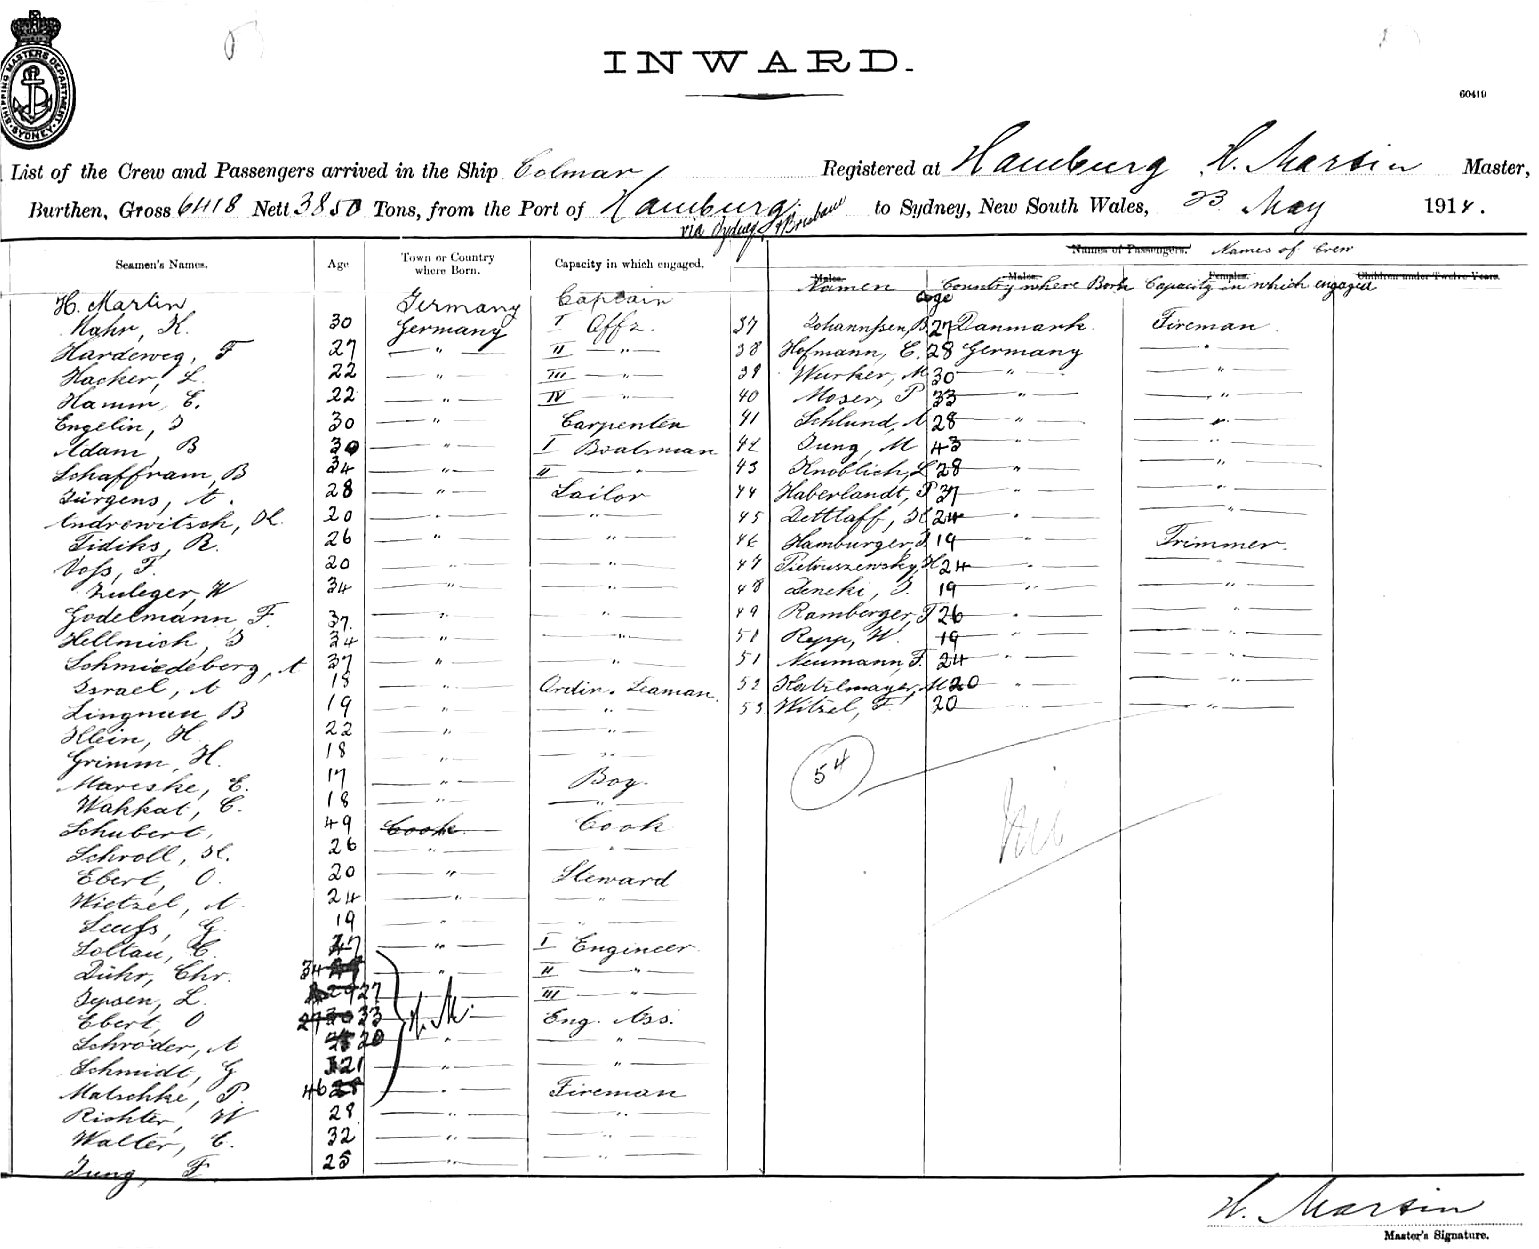 INWARD.
SHIPPING MASTERS DEPARTMENT SYDNEY
60410
List of the Crew and Passengers arrived in the Ship Colmar Registered at Hamburg H. Martin Master,
Burthen, Gross 6418 Nett 3850 Tons, from the Port of Hamburg to Sydney, New South Wales, 23 May 1914.
via Sydney & Brisbane
Seamen's Names. Age Town or Country where Born. Capacity in which engaged.
H. Martin Germany Captain
Kahr, K. 30 Germany I Offz.
Hardeweg, F 27 " II "
Hacker, L. 22 " III "
Hamm, E. 22 " IV "
Engelin, J 30 " Carpenter
Adam, B 30 " I Boatsman
Schaffram, B 34 " II "
Jürgens, A. 28 " Sailor
Andrewitsch, K. 20 " "
Tidiks, R. 26 " "
Voss, F. 20 " "
Zuleger, W 34 " "
Godelmann, F. 37. " "
Hellmich, J 34 " "
Schmiedeberg, A 37 " "
Israel, A 18 " Ordin. Seaman
Lingnau B 19 " "
Klein, H 22 " "
Grimm, H. 18 " "
Mareske, E. 17 " Boy
Wakkat, C. 18 " "
Schubert, 49 Cook Cook
Schroll, K. 26 " "
Ebert, O. 20 " Steward
Wietzel, A. 24 " "
Seufs, G. 19 " "
Soltau, C. 47 " I Engineer
Dühr, Chr. 34 " II "
Jepsen, L. 29 27 " III "
Ebert, O 27 30 33 Eng. Ass.
H. M.
Schröder, A 20 " "
Schmidt, G 21 "
Matschke, P. 46 28 " Fireman
Richter, W 28 " "
Walter, C. 32 " "
Jung, F. 25 " "
Names of Passengers. Names of Crew
Males. Males. Females. Children under Twelve Years.
Namen Age Country where Born Capacity in which engaged
37 Johannssen, B. 27 Danmark Fireman
38 Hofmann, C. 28 Germany "
39 Wurker, M 30 " "
40 Moser, P 33 " "
41 Schlund, A 28 " "
42 Jung, M 43 " "
43 Knoblich, L 28 " "
44 Haberlandt, P 37 " "
45 Dettlaff, K 24 " "
46 Hamburger, J. 19 " Trimmer.
47 Pietruszewsky, H 24 " "
48 Zencke, J. 19 " "
49 Ramberger, T 26 " "
51 Repp, W. 19 " "
51 Neumann, F. 24 " "
52 Hertzlmayer, M 20 " "
53 Witzel, F 20 " "
54
Nil
H. Martin
Master's Signature.